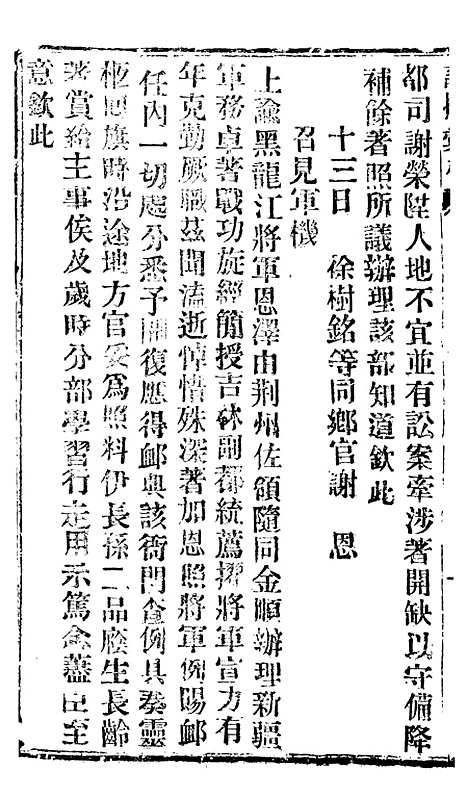 都司謝榮陞人地不宜並有訟案牽涉著開缺以守備降
補餘著照所議辦理該部知道欽此
十三日　徐樹銘等同鄉官謝　恩
召見軍機
上諭黑龍江將軍恩澤由荆州佐領隨同金順辦理新疆
軍務卓著戰功旋經簡授吉林副都統薦擢將軍宣力有
年克勤厥職茲聞溘逝悼惜殊深著加恩照將軍例賜卹
任內一切處分悉予開復應得卹典該衙門查例具奏靈
柩回旗時沿途地方官妥爲照料伊長孫二品廕生長齡
著賞給主事俟及歲時分部學習行走用示篤念藎臣至
意欽此